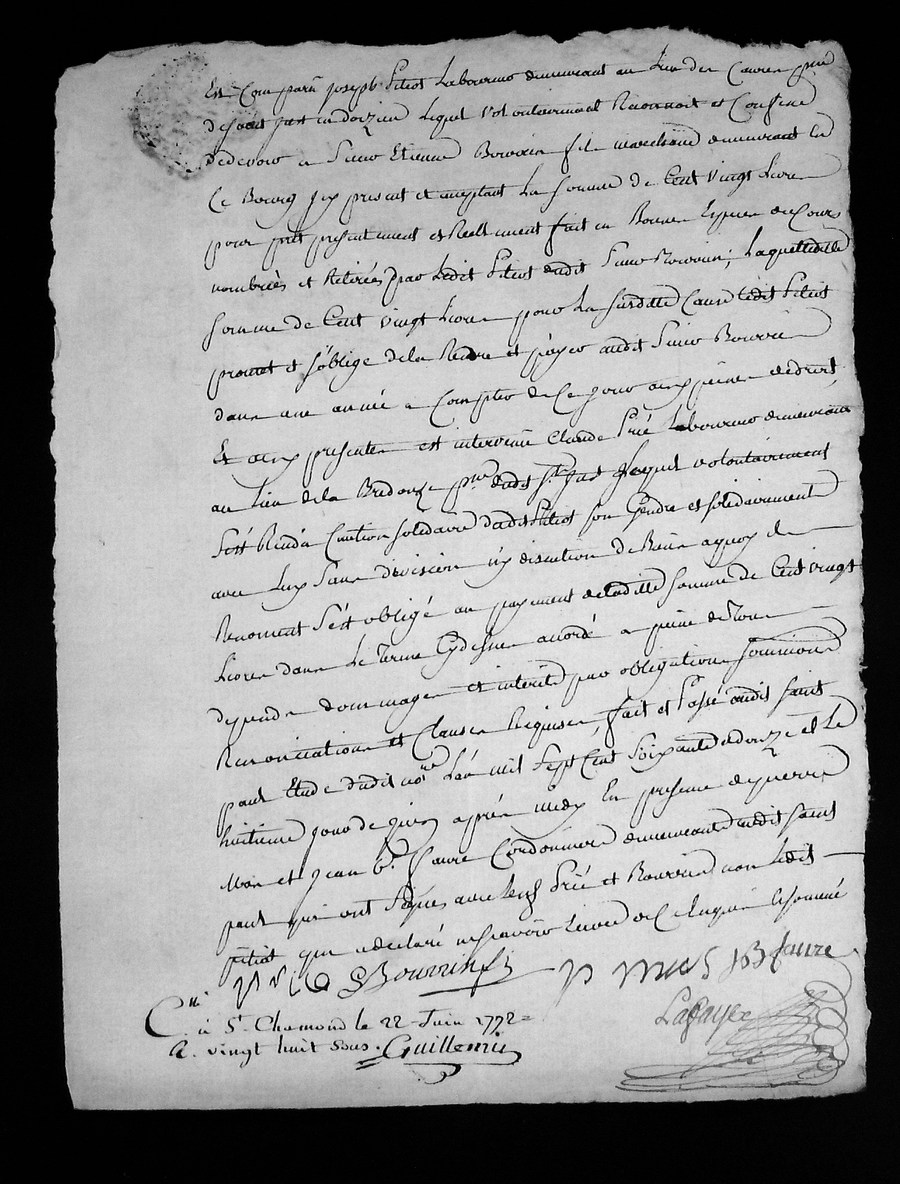 Est Comparu joseph Pitiot Laboureur demeurant au Lieu de
de saint just en doizieu Lequel volontairement Reconnoit et Confesse
de devoir a Sieur Etienne Bouvrin fils marchand demeurant en
Ce Bourg jcy present et acceptant La somme de Cent vingt Livres
pour prêt presentement et Reellement fait en Bonnes Especes de Cours
nombrées et Retirées par Ledit Pitiot dudit Sieur Bouvrin, Laquelle ditte
somme de Cent vingt Livres pour La susditte Cause Ledit Pitiot
promet et s'oblige de la Rendre et payer audit Sieur Bouvrin
dans une année a Compter de Ce jour aux peines de droit,
Et aux presentes est intervenu Claude Prié Laboureur demeurant
au Lieu de la prse dudit st just Lequel volontairement
s'est Rendu Caution solidaire dudit Pitiot son Gendre et solidairement
avec Luy sans division ny discution de Biens aquoy il
Renoncent s'est obligé au payement de laditte somme de Cent vingt
Livres dans Le Terme Cy dessus accordé a peine de Tous
depends dommages et interêts par obligations soumissions
Renonciations et Clauses Requises, fait et Passé audit saint
paul Etude dudit nore L'an mil sept Cent soixante et douze et Le
huitieme jour de juin après midy En presence de pierre
et jean Bte Faure Cordonniers demeurants audit saint
paul qui ont signés avec Lesd Prié et Bouvrin non Ledit
pitiot qui a declaré ne sçavoir Ecrire de ce Enquis et sommé
Prié Bouvrin fils JB faure
Cllé
à St. Chamond le 22 Juin 1772
R. vingt huit sous. Guillemin